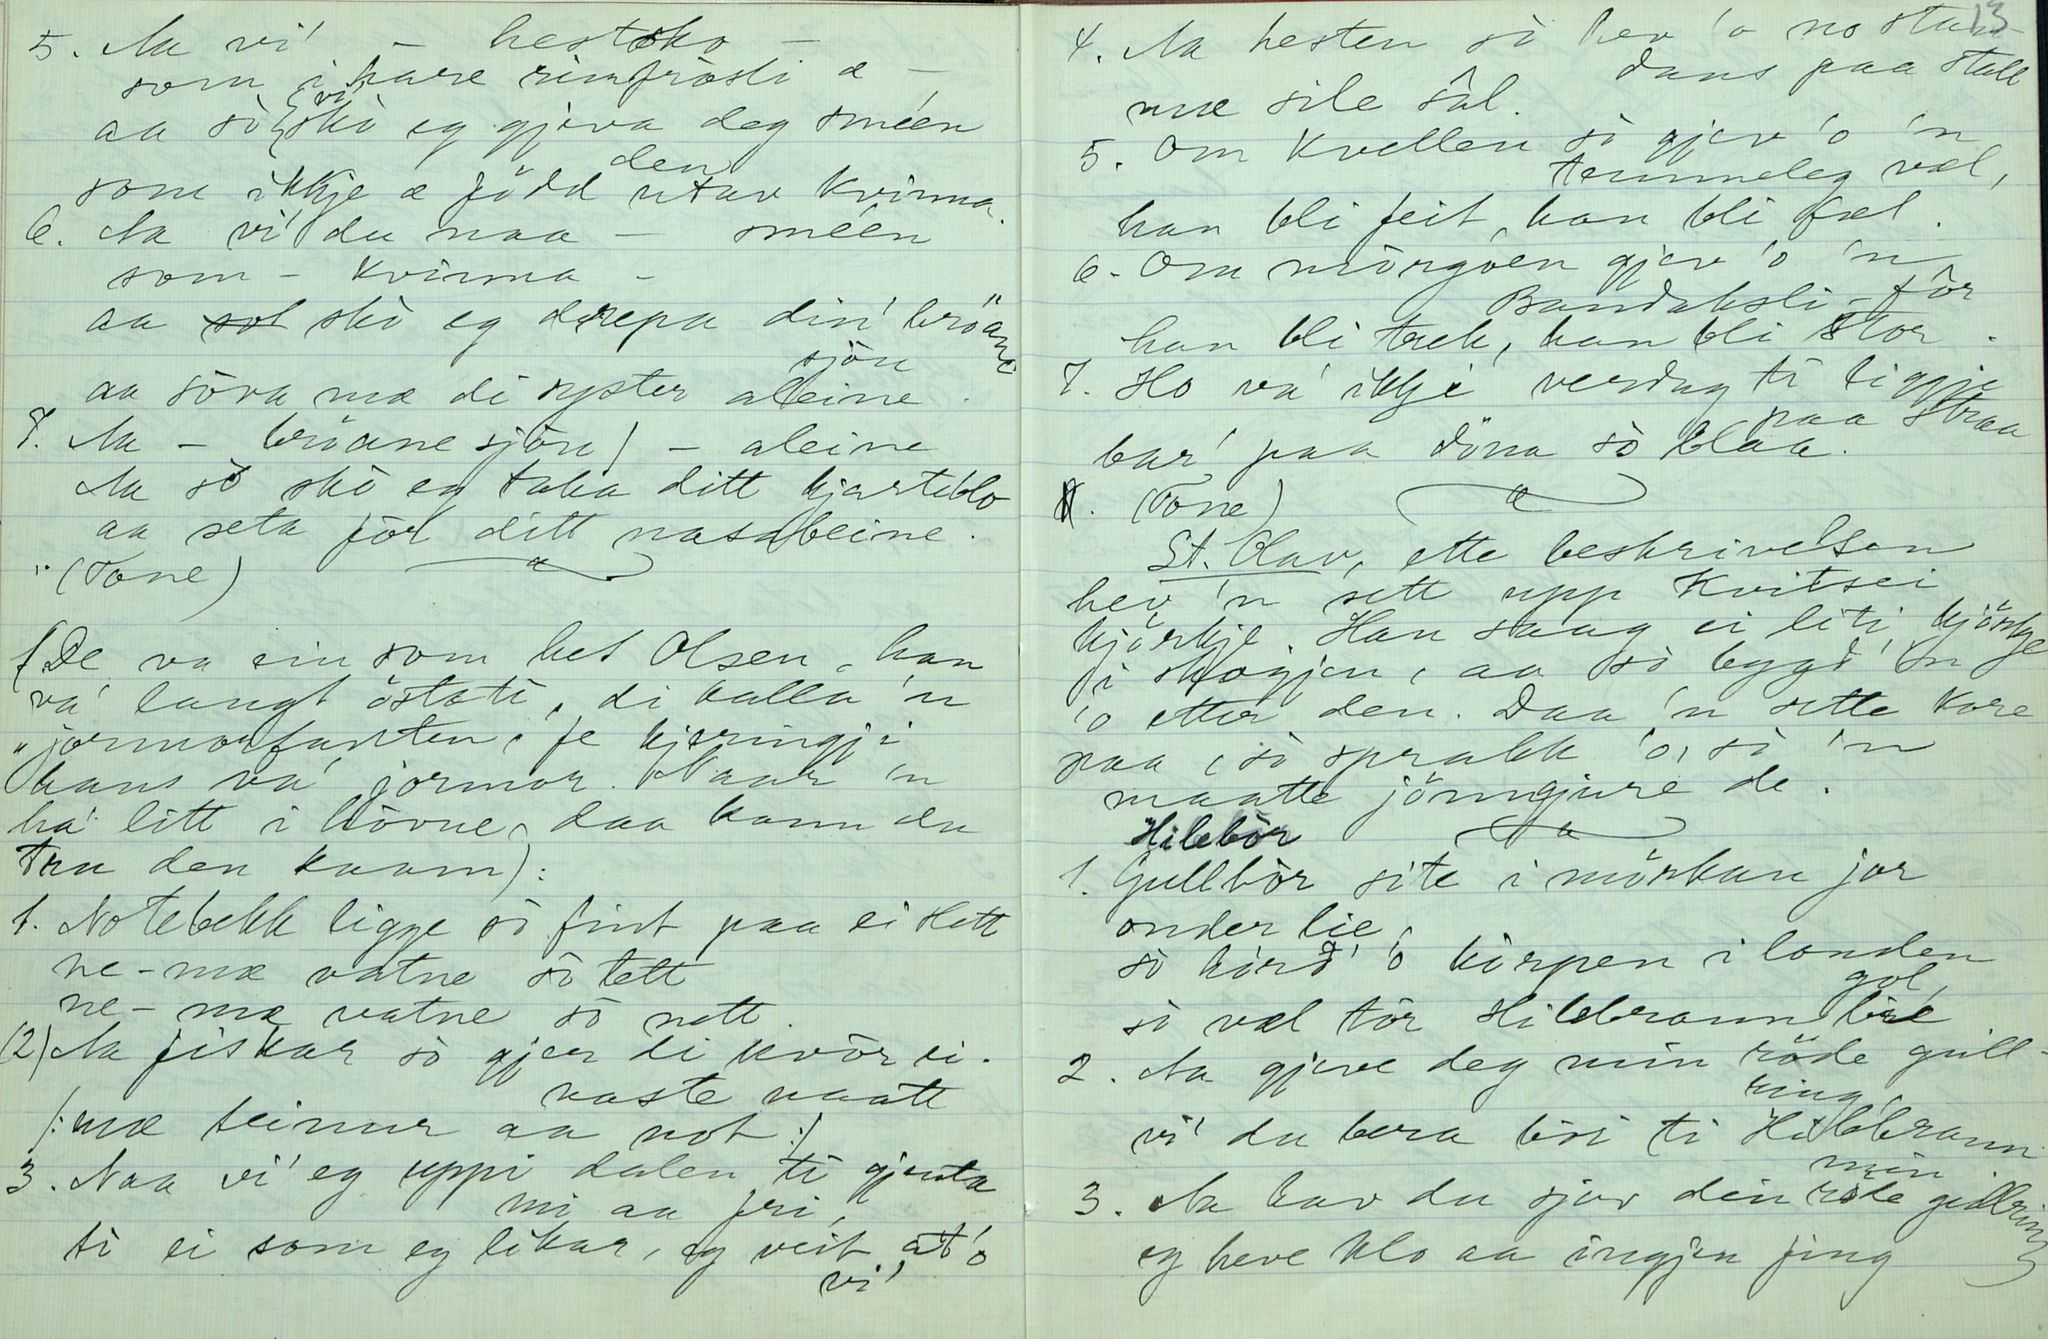 5. Aa vi' – hestsko –
som i hare rimfrösti æ –
vi
aa so skò eg gjeva deg sméen
den
som ikkje æ född utav kvinna.
6. Aa vi' du naa – sméen
som – kvinna –
aa skò eg drepa din' bröane
sjön
aa söva mæ di syster aleine.
7. Aa – bröane sjön) – aleine
Aa sò skò eg taka ditt hjarteblo
aa setaför ditt nasabeine.
(Tone)
(De va ein som het Olsen, han
va' langt östati, di kalla 'n
"jormorfanten, fe kjeringji
hans va' jormor. Naar 'n
ha' litt i hövne, daa kann du
tru den kaam):
1. Notebekk ligge sò fint paa ei slett
ne-mæ vatne sò tett
ne-mæ vatne sò nett.
(2) Aa fiskar sò gjer di kvör ei-
naste naatt
/: mæ teinur aa not :/
3. Naa vi' eg uppi dalen ti gjenta
mi aa fri,
ti ei som eg likar, eg veit at 'o
vi'
13
4. Aa hesten sò hev 'o no sta-
dans paa stall
mæ sile sâl.
5. Om kvellen sò gjev 'o 'n
temmeleg væl,
han bli feit, han bli fæl.
6. Om mörgòen gjev 'o 'n
Bandaksli-fôr
han bli trek, han bli stor.
7. Ho va' ikkje verdug ti liggje
paa straa
bar' paa döna sò blaa.
(Tone)
St. Olav, ette beskrivelsen
hev 'n sett upp Kvitsei
kjörkje. Han saag ei liti kjörkje
i skogjen, aa sò bygd' 'n
'o etter den. Daa 'n sette kore
paa, sò sprakk 'o, sò 'n
maatte jönngjure de.
Hilebòr
1. Gullbòr site i mörkan jor
onder lie,
sò hörd' 'o körpen i londen
gol,
sò væl tör Hilebrann lie
2. Aa gjeve deg min röde gull-
ring,
vi' du bera bòi ti Hilebrann
min
3. Aa hav du sjav din röde gullring
eg heve klo aa ingjen fing